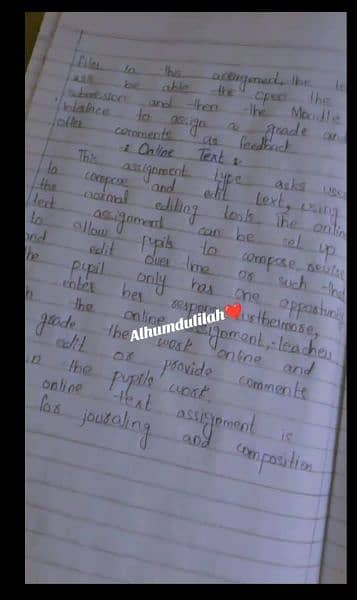 files in this arrangement, the
be able the open the
submission and then the Moodle
interface to assign a grade and
offer comments as feedback
: Online Text :
This assignment type asks user
to compose and edit text, using
the normal editing tools the online
text assignment can be set up
to allow pupils to compose, revise
and edit over time or such that
the pupil only has one opportunity
enter her response. Furthermore,
the online assignment, teacher
grade the work online and
edit or provide comments
in the pupil's work.
online text assignment is
for journaling and composition
Alhumdulilah